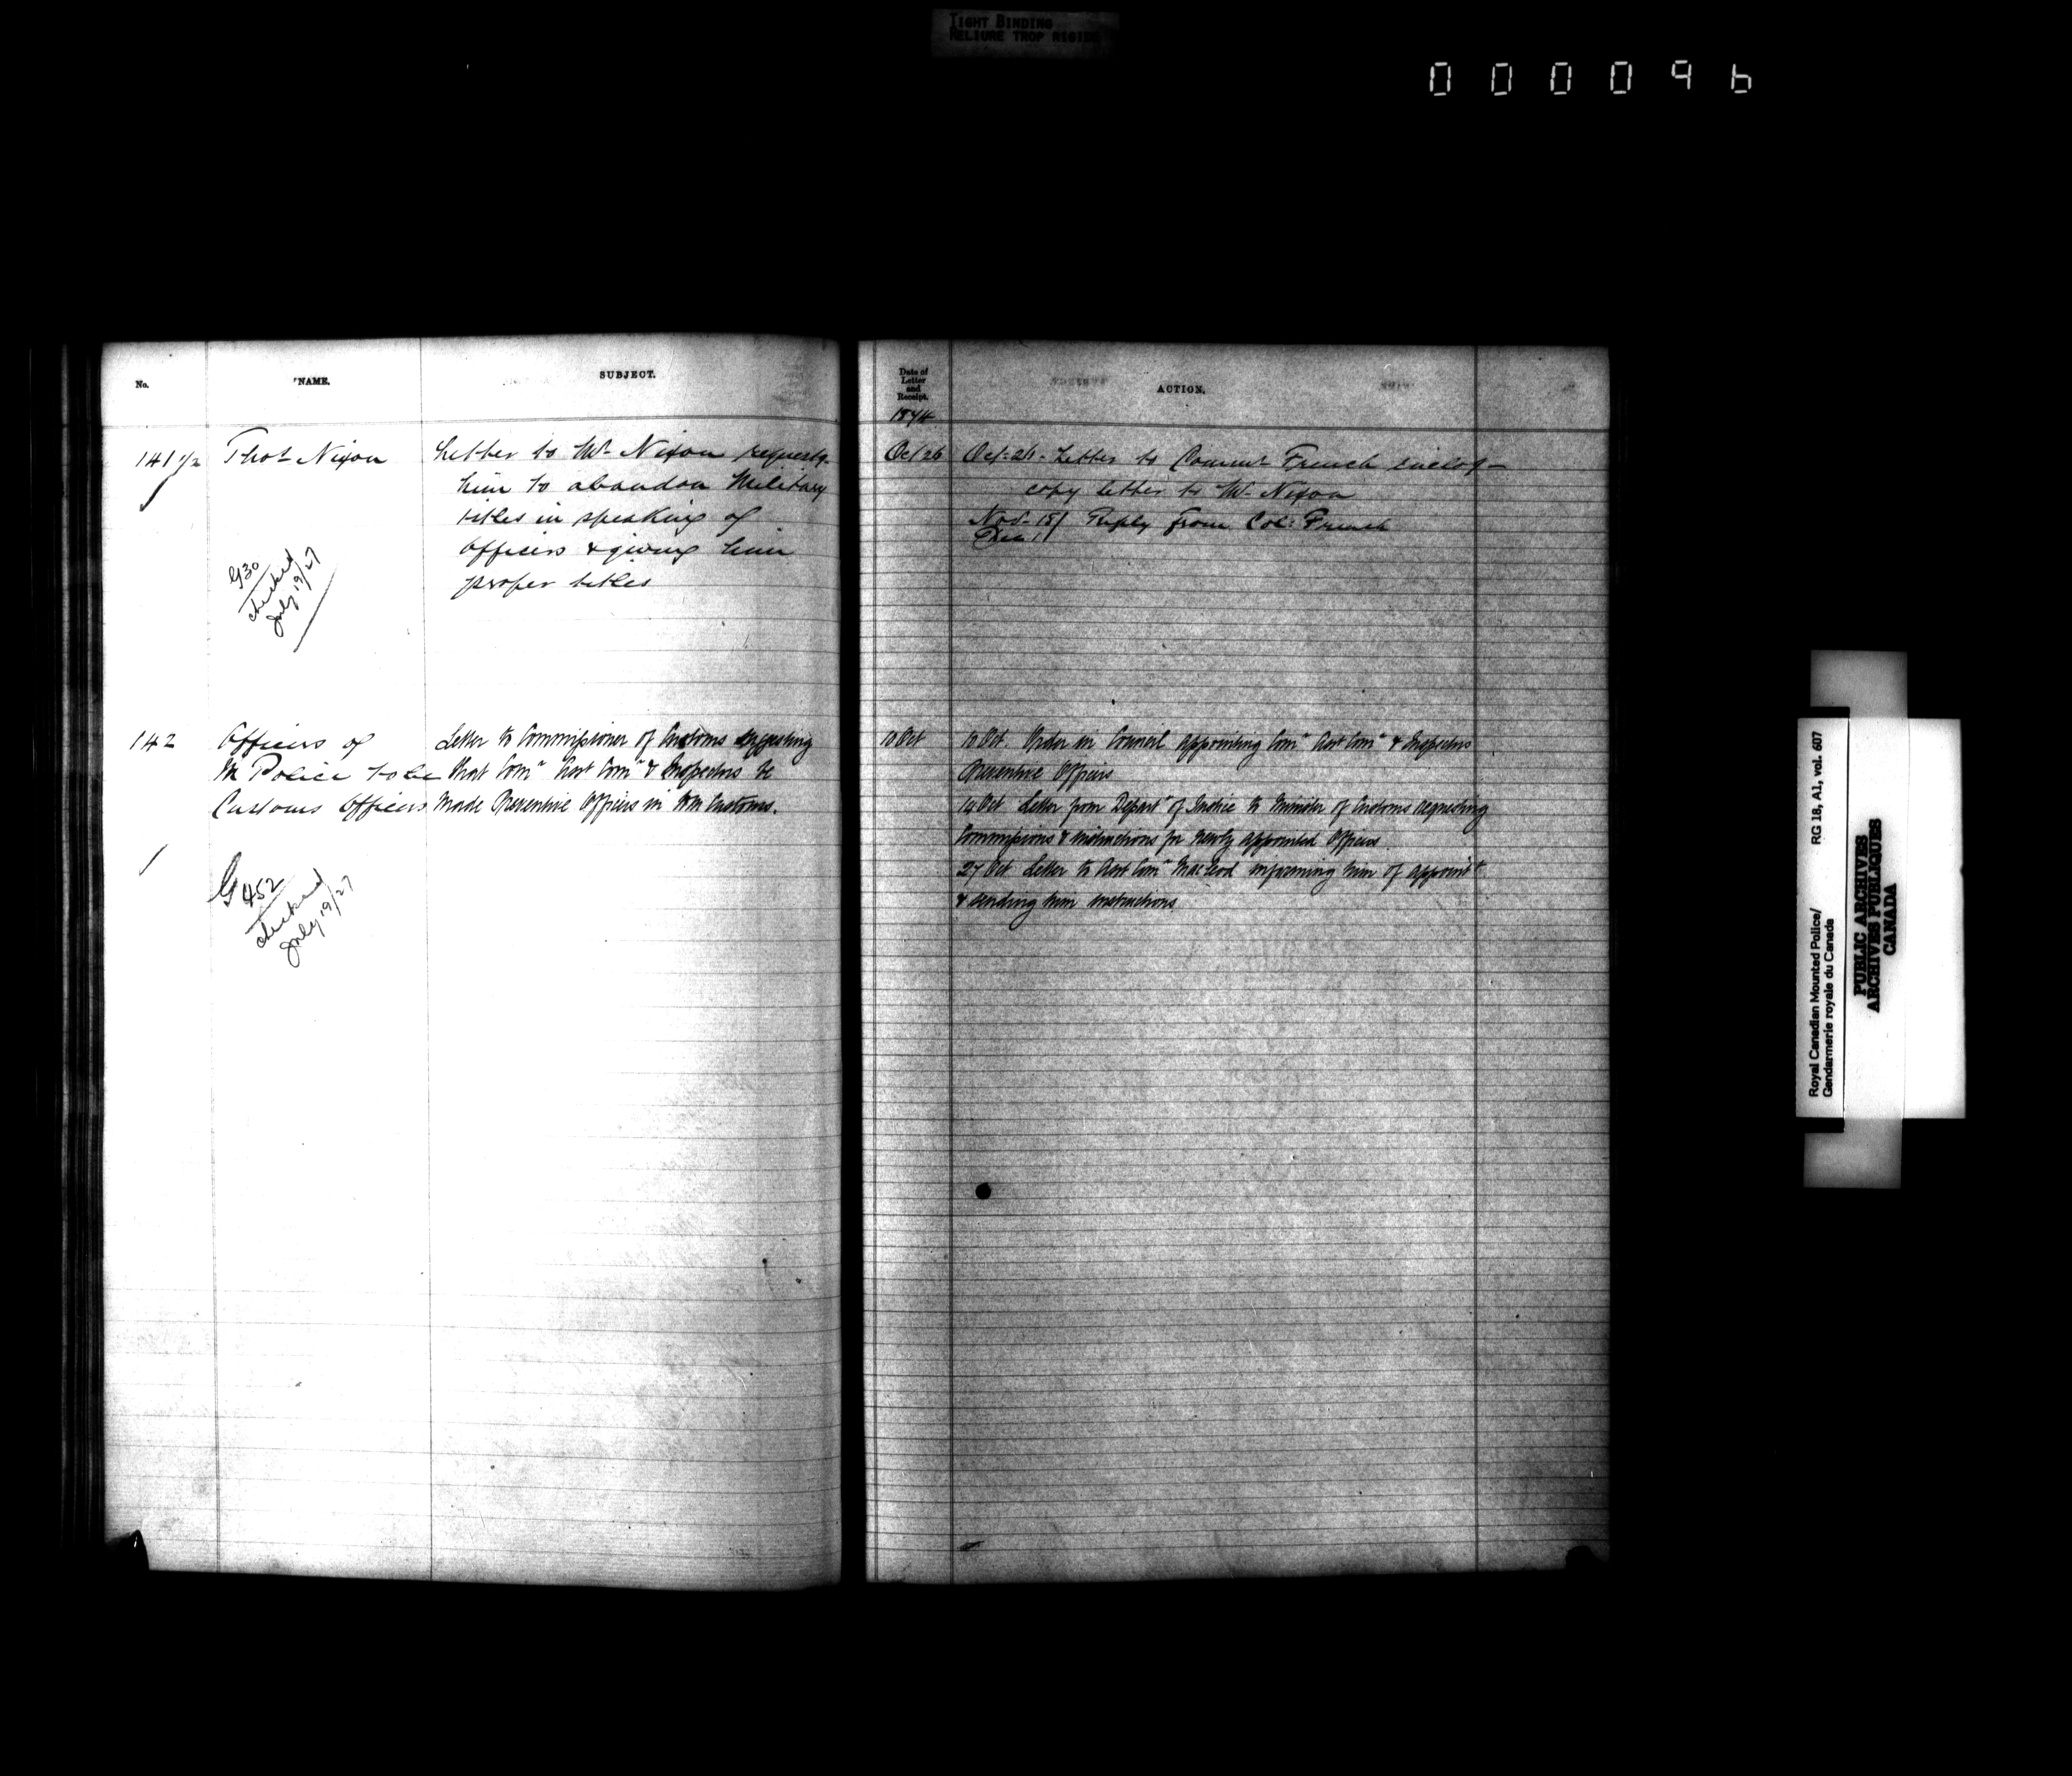 TIGHT BINDING
RELIURE TROP RIGIDE
000096
No. NAME. SUBJECT.
141 1/2 Thos Nixon Letter to Mr Nixon requestg
him to abandon Military
titles in speaking of
Officers & giving him
proper titles
G30
checked
July 19/27
142 Officers of Letter to Commissioner of Customs suggesting
M Police to be that Comr Asst Comr & Inspectors be
Customs Officers made Preventive Officers in HM Customs.
G 452
checked
July 19/27
Date of
Letter
and
Receipt.
ACTION.
1874
Oct 26 Oct. 26 - Letter to Commr French inclosg
copy letter to Mr Nixon
Nov. 15/ Reply from Col: French
Dec 1
10 Oct 10 Oct. Order in Council appointing Comr Asst Comr & Inspectors
Preventive Officers
14 Oct Letter from Departt of Justice to Minister of Customs requesting
Commissions & instructions for newly appointed Officers
27 Oct Letter to Asst Comr MacLeod informing him of appoint't
& sending him instructions
Royal Canadian Mounted Police/ RG 18, A1, vol. 607
Gendarmerie royale du Canada
PUBLIC ARCHIVES
ARCHIVES PUBLIQUES
CANADA